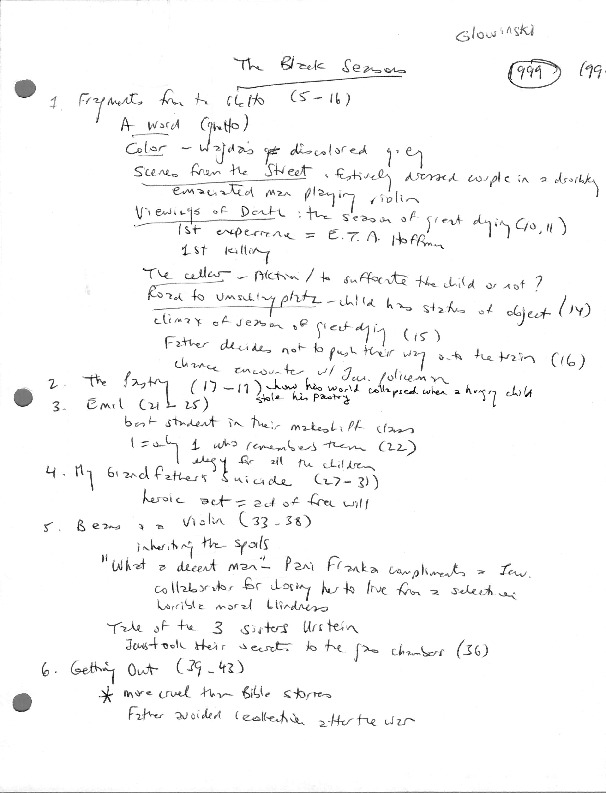 Glowinski
The Black Seasons
1999 (99
1. Fragments from the Ghetto (5-16)
A word (ghetto)
Color - Wajda's discolored grey
Scenes from the Street, festively dressed couple in a droshky
emaciated man playing violin
Viewings of Death: the season of great dying (10, 11)
1st experience = E.T.A. Hoffman
1st killing
The cellar - Aktion / to suffocate the child or not?
Road to Umschlagplatz - child has status of object (14)
climax of season of great dying (15)
Father decides not to push their way onto the train (16)
chance encounter w/ Jew. policeman
2. The Pastry (17-19) how his world collapsed when a hungry child
stole his pastry
3. Emil (21-25)
best student in their makeshift class
1 = only 1 who remembers them (22)
elegy for all the children
4. My Grandfather's Suicide (27-31)
heroic act = act of free will
5. Beans & a Violin (33-38)
inheriting the spoils
"What a decent man" - Pani Franka compliments a Jew.
collaborator for allowing her to live from a selection
horrible moral blindness
Tale of the 3 sisters Urstein
Jews took their secrets to the gas chambers (36)
6. Getting Out (39-43)
* more cruel than Bible stories
Father avoided recollection after the war